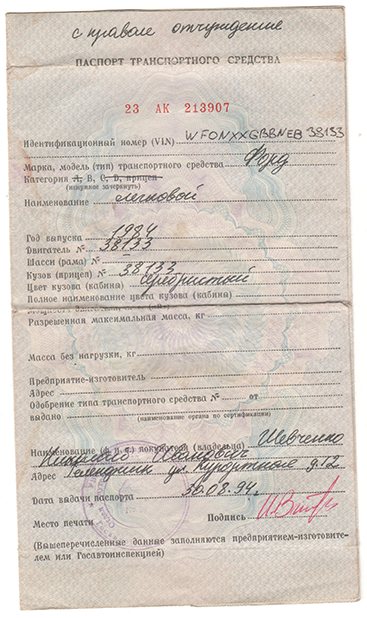 с правом отчуждения
ПАСПОРТ ТРАНСПОРТНОГО СРЕДСТВА
23 АК 213907
Идентификационный номер (VIN) WF0NXXGBBNEB 38133
Марка, модель (тип) транспортного средства Форд
Категория А, В, С, D, прицеп
(ненужное зачеркнуть)
Наименование легковой
Год выпуска 1984
Двигатель № 38133
Шасси (рама) № –
Кузов (прицеп) № 38133
Цвет кузова (кабины) серебристый
Полное наименование цвета кузова (кабины)
Разрешенная максимальная масса, кг
Масса без нагрузки, кг
Предприятие-изготовитель
Адрес
Одобрение типа транспортного средства № от
выдано
(наименование органа по сертификации)
Наименование (ф. и. о.) покупателя (владельца) Шевченко
Иванович
Адрес Геленджик ул. Курортная д. 12
Дата выдачи паспорта 30.08.94г.
Место печати Подпись
(Вышеперечисленные данные заполняются предприятием-изготовите-
лем или Госавтоинспекцией)